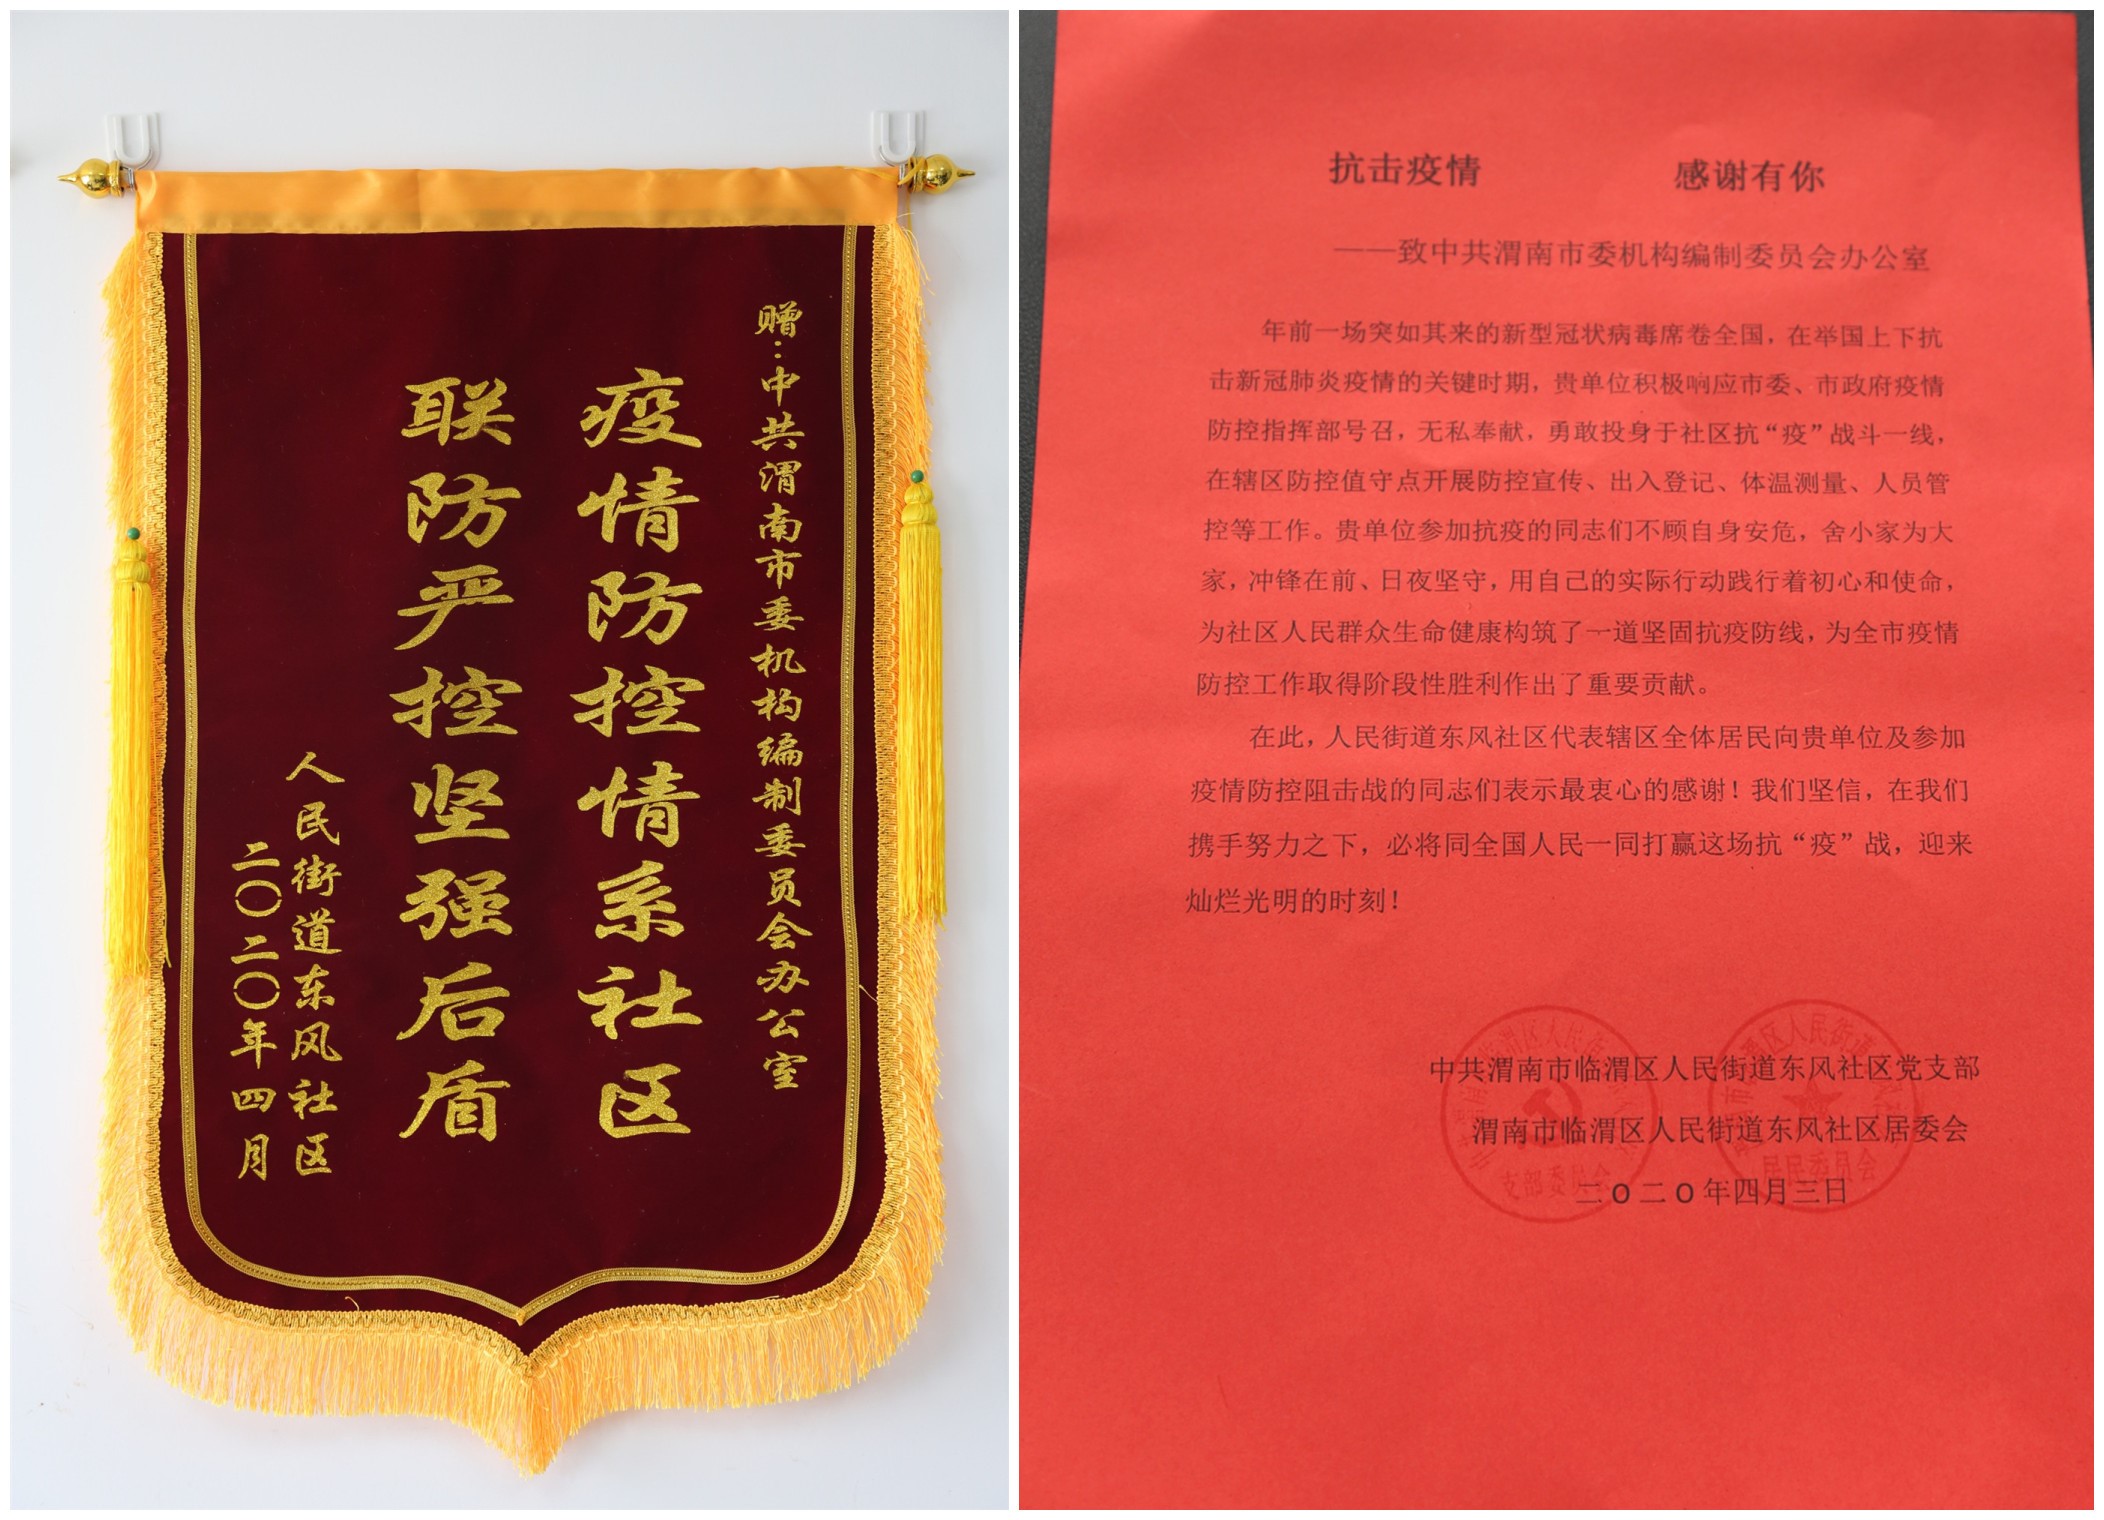 赠：中共渭南市委机构编制委员会办公室
疫情防控情系社区
联防严控坚强后盾
人民街道东风社区
二〇二〇年四月
抗击疫情 感谢有你
——致中共渭南市委机构编制委员会办公室
年前一场突如其来的新型冠状病毒席卷全国，在举国上下抗
击新冠肺炎疫情的关键时期，贵单位积极响应市委、市政府疫情
防控指挥部号召，无私奉献，勇敢投身于社区抗“疫”战斗一线，
在辖区防控值守点开展防控宣传、出入登记、体温测量、人员管
控等工作。贵单位参加抗疫的同志们不顾自身安危，舍小家为大
家，冲锋在前、日夜坚守，用自己的实际行动践行着初心和使命，
为社区人民群众生命健康构筑了一道坚固抗疫防线，为全市疫情
防控工作取得阶段性胜利作出了重要贡献。
在此，人民街道东风社区代表辖区全体居民向贵单位及参加
疫情防控阻击战的同志们表示最衷心的感谢！我们坚信，在我们
携手努力之下，必将同全国人民一同打赢这场抗“疫”战，迎来
灿烂光明的时刻！
中共渭南市临渭区人民街道东风社区党支部
渭南市临渭区人民街道东风社区居委会
二O二O年四月三日
支部委员会
居民委员会